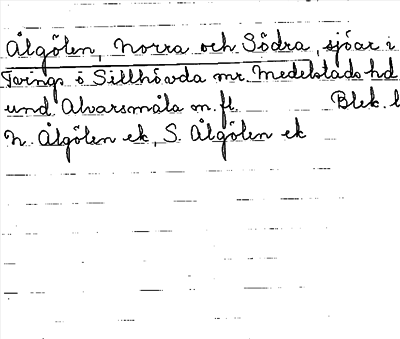 Ålgölen, Norra och Södra, sjöar i
Tvings o Sillhövda snr. Medelstads hd
und. Alvarsmåla m. fl. Blek. l
N. Ålgölen ek, S. Ålgölen ek